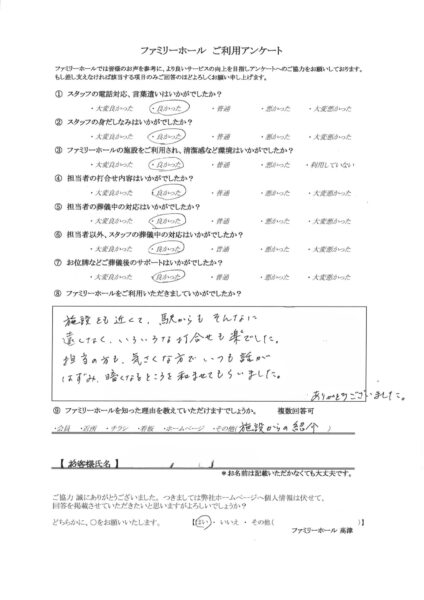 ファミリーホール ご利用アンケート
ファミリーホールでは皆様のお声を参考に、より良いサービスの向上を目指しアンケートへのご協力をお願いしております。
もし差し支えなければ該当する項目のみご回答のほどよろしくお願い申し上げます。
① スタッフの電話対応、言葉遣いはいかがでしたか？
・大変良かった ・良かった ・普通 ・悪かった ・大変悪かった
② スタッフの身だしなみはいかがでしたか？
・大変良かった ・良かった ・普通 ・悪かった ・大変悪かった
③ ファミリーホールの施設をご利用され、清潔感など環境はいかがでしたか？
・大変良かった ・良かった ・普通 ・悪かった ・利用していない
④ 担当者の打合せ内容はいかがでしたか？
・大変良かった ・良かった ・普通 ・悪かった ・大変悪かった
⑤ 担当者の葬儀中の対応はいかがでしたか？
・大変良かった ・良かった ・普通 ・悪かった ・大変悪かった
⑥ 担当者以外、スタッフの葬儀中の対応はいかがでしたか？
・大変良かった ・良かった ・普通 ・悪かった ・大変悪かった
⑦ お位牌などご葬儀後のサポートはいかがでしたか？
・大変良かった ・良かった ・普通 ・悪かった ・大変悪かった
⑧ ファミリーホールをご利用いただきましていかがでしたか？
施設とも近くて、駅からもそんなに
遠くなく、いろいろな打合せも楽でした。
担当の方も、気さくな方でいつも話が
はずみ、暗くなるところを和ませてもらいました。
ありがとうございました。
⑨ ファミリーホールを知った理由を教えていただけますでしょうか。 複数回答可
・会員 ・近所 ・チラシ ・看板 ・ホームページ ・その他( 施設からの紹介 )
【 お客様氏名 】
＊お名前は記載いただかなくても大丈夫です。
ご協力 誠にありがとうございました。つきましては弊社ホームページへ個人情報は伏せて、
回答を掲載させていただきたいと思いますがよろしいでしょうか？
どちらかに、〇をお願いいたします。 【 はい ・ いいえ ・ その他( )】
ファミリーホール 高津